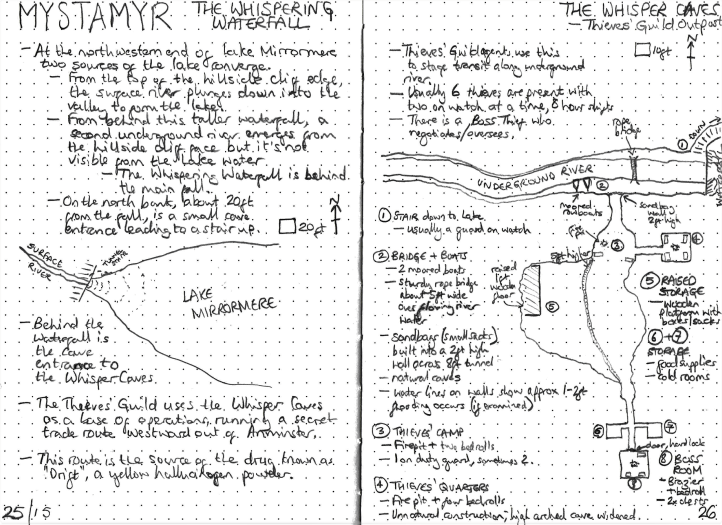 MYSTAMYR
THE WHISPERING
WATERFALL
- At the northwestern end of Lake Mirrormere
two sources of the lake converge.
- From the top of the hillside cliff edge,
the surface river plunges down into the
valley to form the lake.
- From behind this taller waterfall, a
second underground river emerges from
the hillside cliff face but it's not
visible from the lake water.
- The Whispering Waterfall is behind
the main fall.
- On the north bank, about 20ft
from the fall, is a small cave
entrance leading to a stair up.
N
20ft
SURFACE
RIVER
LAKE
MIRRORMERE
- Behind the
waterfall is
the cave
entrance to
the Whisper Caves
- The Thieves' Guild uses the Whisper Caves
as a base of operations, running a secret
trade route westward out of
- This route is the source of the drug known as
"Drift", a yellow powder.
25/15
THE WHISPER CAVES
- Thieves' Guild Outpost
10ft
N
- Thieves' Guild agents use this
to stage transit along underground
river.
- Usually 6 thieves are present with
two on watch at a time, 8 hour shifts
- There is a Boss Thief who
negotiates/oversees.
rope
bridge
1
DOWN
UNDERGROUND RIVER
2
moored
rowboats
sandbag
wall
2ft high
1 STAIR down to lake
- usually a guard on watch
2 BRIDGE + BOATS
- 2 moored boats
- sturdy rope bridge
about 5ft wide
over flowing river
water
- sandbags (small sacks)
built into a 2ft high
wall across 8ft tunnel
- natural caves
- water lines on walls show approx 1-2ft
flooding occurs (if examined)
3 THIEVES' CAMP
- Firepit + two bedrolls
- 1 on duty guard, sometimes 2.
4 THIEVES' QUARTERS
- Fire pit + four bedrolls
- Unnatural construction, high arched cave widened.
3
4
raised
1ft
wooden
floor
5
5 RAISED
STORAGE
- wooden
platform with
boxes/sacks
6 + 7
STORAGE
- food supplies
- cold rooms
6
7
door, hard lock
8
8 BOSS
ROOM
- Brazier
+ bedroll
- 2x chests
26